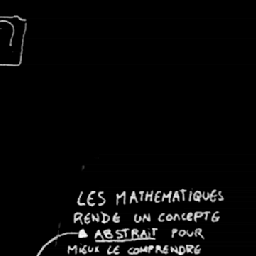 LES MATHEMATIQUES
RENDE UN CONCEPTE
ABSTRAIT POUR
MIEUX LE COMPRENDRE